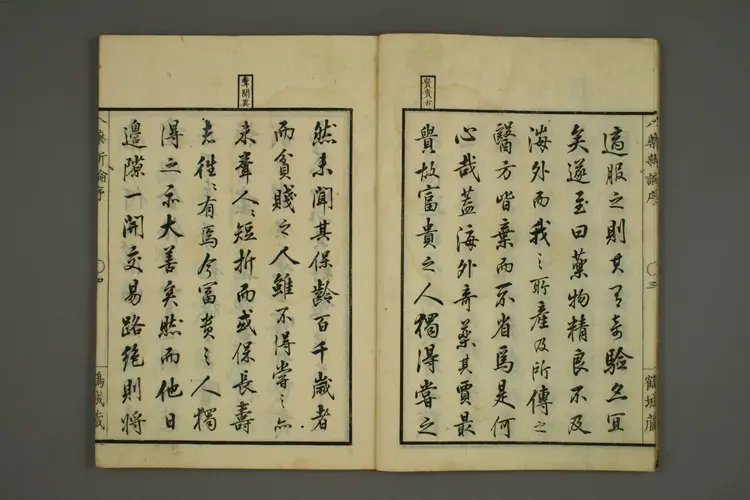 適服之則其有奇驗亦宜
矣遂至曰藥物精良不及
海外而我之所產及所傳之
醫方皆棄而不省焉是何
心哉蓋海外奇藥其賈最
貴故富貴之人獨得嘗之
然未聞其保齡百千歲者
而貧賤之人雖不得嘗之亦
未聾人人短折而或保長壽
者往往有焉今富貴之人獨
得之亦大善矣然而他日
邊隙一開交易路絕則將